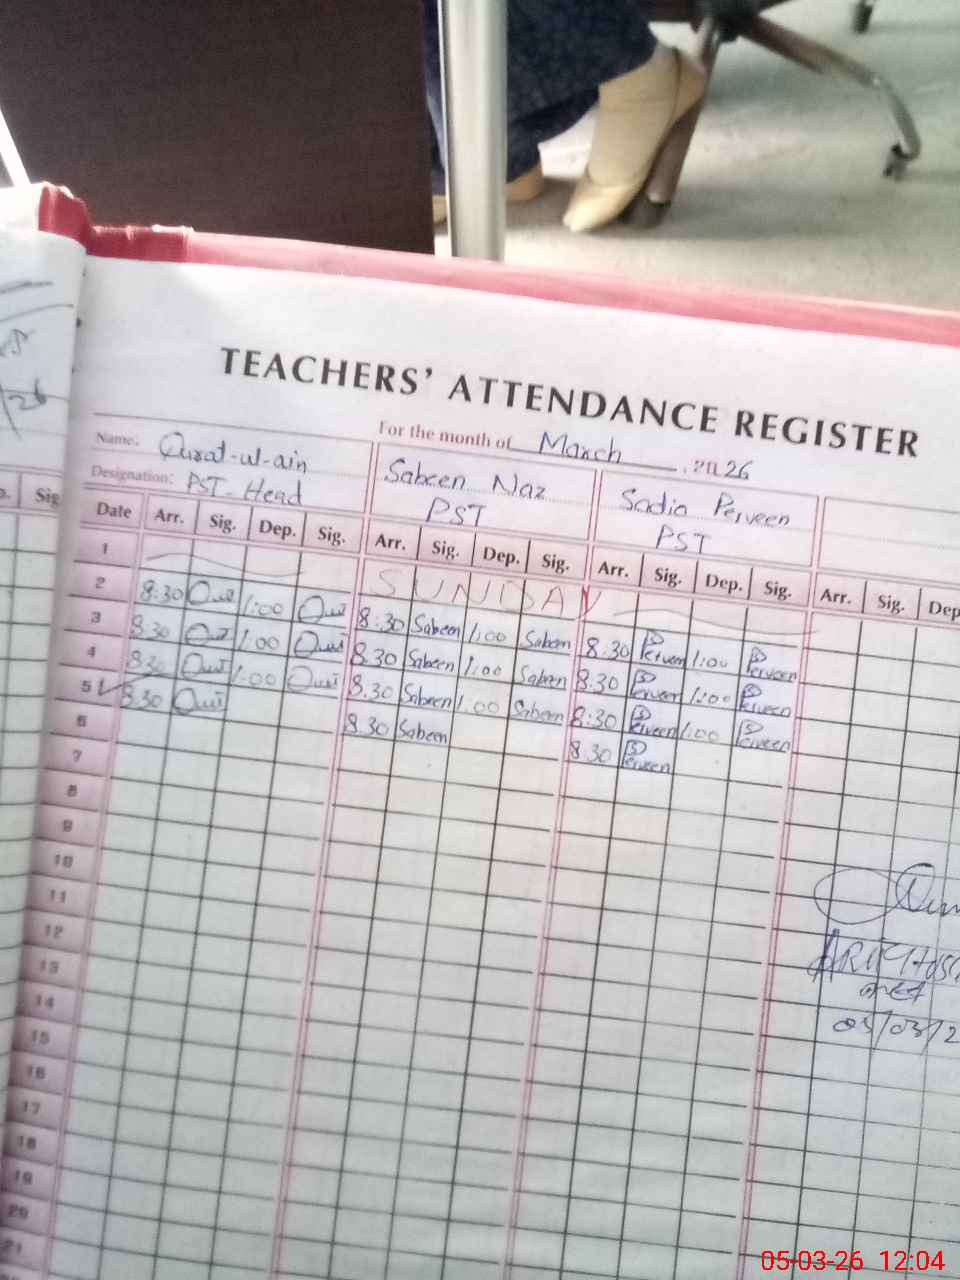 TEACHERS' ATTENDANCE REGISTER
For the month of March, 2026
Name: Qurat-ul-ain Sabeen Naz Sadia Perveen
Designation: PST-Head PST PST
Date Arr. Sig. Dep. Sig. Arr. Sig. Dep. Sig. Arr. Sig. Dep. Sig. Arr. Sig. Dep
1 SUNDAY
2 8:30 Qurat 1:00 Qurat 8:30 Sabeen 1:00 Sabeen 8:30 Perveen 1:00 Perveen
3 8:30 Qurat 1:00 Qurat 8:30 Sabeen 1:00 Sabeen 8:30 Perveen 1:00 Perveen
4 8:30 Qurat 1:00 Qurat 8:30 Sabeen 1:00 Sabeen 8:30 Perveen 1:00 Perveen
5 8:30 Qurat 8:30 Sabeen 8:30 Perveen
6
7
8
9
10
11
12
13
14
15
16
17
18
19
20
21
05/03/2
Sig
26
05-03-26 12:04